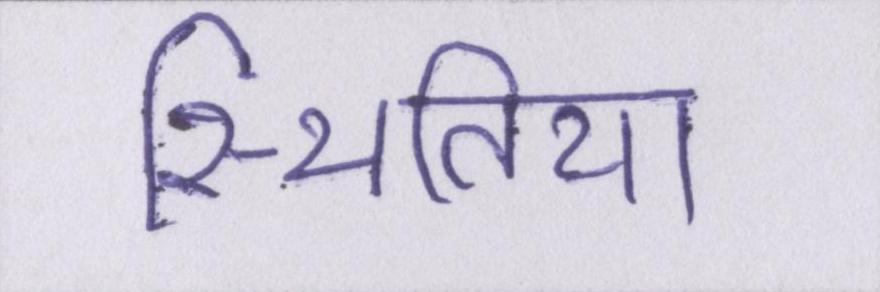 स्थितिया